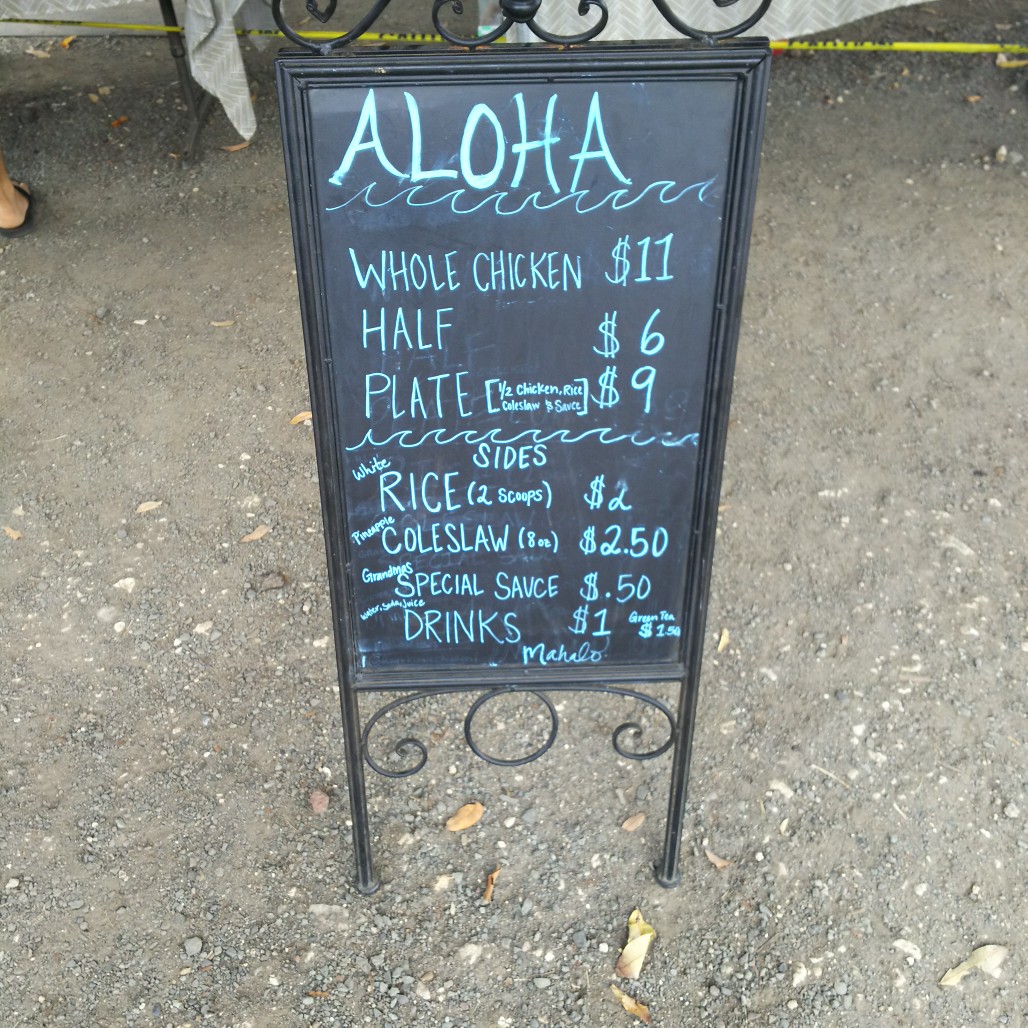 ALOHA
WHOLE CHICKEN $11
HALF $6
PLATE [1/2 Chicken, Rice
Coleslaw & Sauce] $9
SIDES
White
RICE (2 SCOOPS) $2
Pineapple
COLESLAW (8oz) $2.50
Grandmas
SPECIAL SAUCE $.50
Water, Soda, Juice
DRINKS $1 Green Tea
$1.50
Mahalo